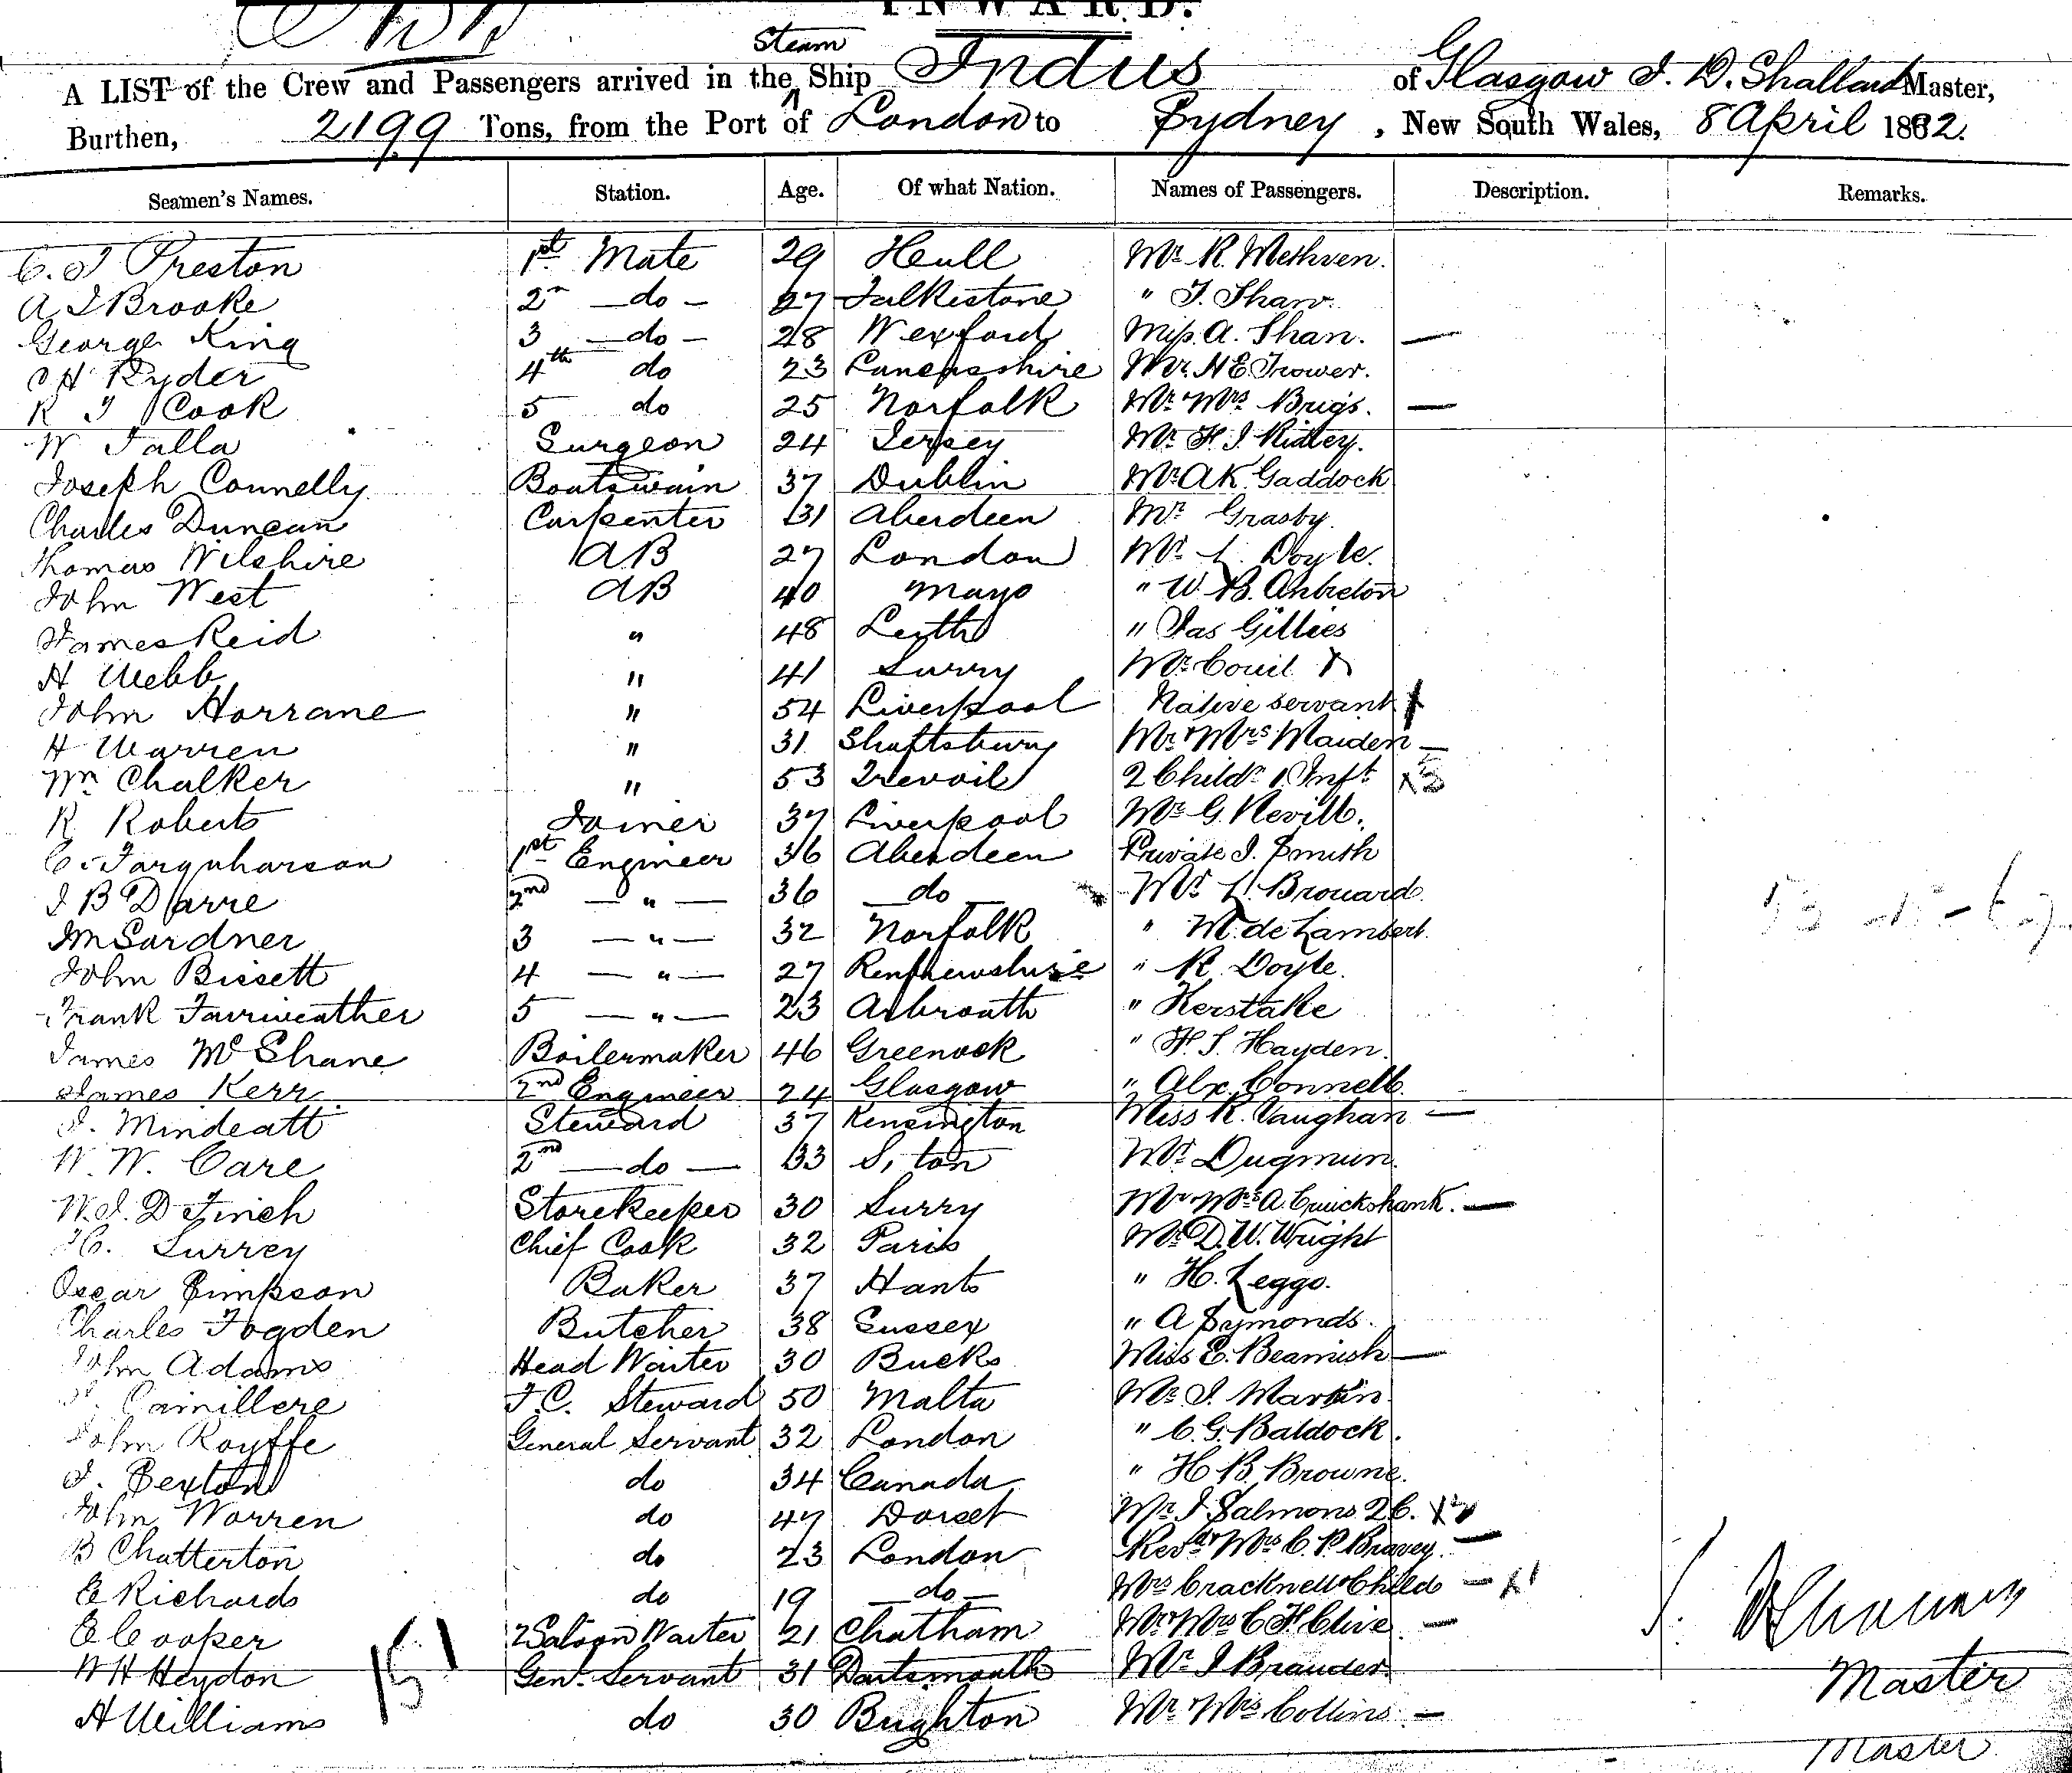 INWARD.
Steam
A LIST of the Crew and Passengers arrived in the Ship Indus of Glasgow J. D. Shallard Master,
Burthen, 2199 Tons, from the Port of London to Sydney, New South Wales, 8 April 1882.
Seamen's Names. Station. Age. Of what Nation. Names of Passengers. Description. Remarks.
C. J Preston 1st Mate 29 Hull Mr R. Methven.
A J Brooke 2n —do— 27 Falkestone " J. Shaw.
George King 3 —do— 28 Wexford Miss A. Shan. —
C H Ryder 4th do 23 Lancasshire Mr. N E. Trower.
R J Cook 5 do 25 Norfolk Mr Mrs Brigs. —
W Falla Surgeon 24 Jersey Mr H. J. Ridley.
Joseph Connelly Boatswain 37 Dublin Mr A K Gaddock
Charles Duncan Carpenter 31 Aberdeen Mr Grasby.
Thomas Wilshire AB 27 London Mr L. Doyle.
John West AB 40 Mayo " W. B.
James Reid " 48 Leith " Jas Gillies
H Webb " 41 Surry Mr
John Horrane " 54 Liverpool Native servant
H Warren " 31 Shaftsbury Mr & Mrs Maiden —
Wm Chalker " 53 Trevoil 2 Childn 1 Inft x3
R Roberts Joiner 37 Liverpool Mr G. Nevill.
C. Farquharson 1st Engineer 36 Aberdeen Private J. Smith
J B Darre 2nd — " — 36 do Mr L. Brouard.
J M Gardner 3 — " — 32 Norfolk " M. de Lambert.
John Bissett 4 — " — 27 Renfrewshire " R. Doyle.
Frank Fairweather 5 — " — 23 Arbroath " Kerstake
James McShane Boilermaker 46 Greenock " H. S. Hayden.
James Kerr 2nd Engineer 24 Glasgow " Alx. Connell.
J. Mindeatt Steward 37 Kensington Miss R. Vaughan —
W. W. Care 2nd —do— 33 Mr Dugmun.
W. J. D Finch Storekeeper 30 Surry Mr & Mrs A. Cruickshank. —
H. Surrey Chief Cook 32 Paris Mr D. W. Wright
Oscar Simpson Baker 37 Hants " H. Leggo.
Charles Fogden Butcher 38 Sussex " A Symonds.
John Adams Head Waiter 30 Bucks Miss E. Beamish —
Camillere F. C. Steward 50 Malta Mr J. Martin.
John Royffe General Servant 32 London " C. G. Baldock.
J. Sexton do 34 Canada " H B. Browne.
John Warren do 47 Dorset Mr J Salmons 2C. x2
B Chatterton do 23 London Revd & Mrs C. P. Bravey. —
E Richards do 19 —do— Mrs Cracknell & Child — x1
E Cooper 2 Saloon Waiter 21 Chatham Mr & Mrs C H Clive. —
W H Heydon Genl. Servant 31 Dartsmouth Mr J Brauder
Master
A Williams do 30 Brighton Mr Mrs Collins —
Master